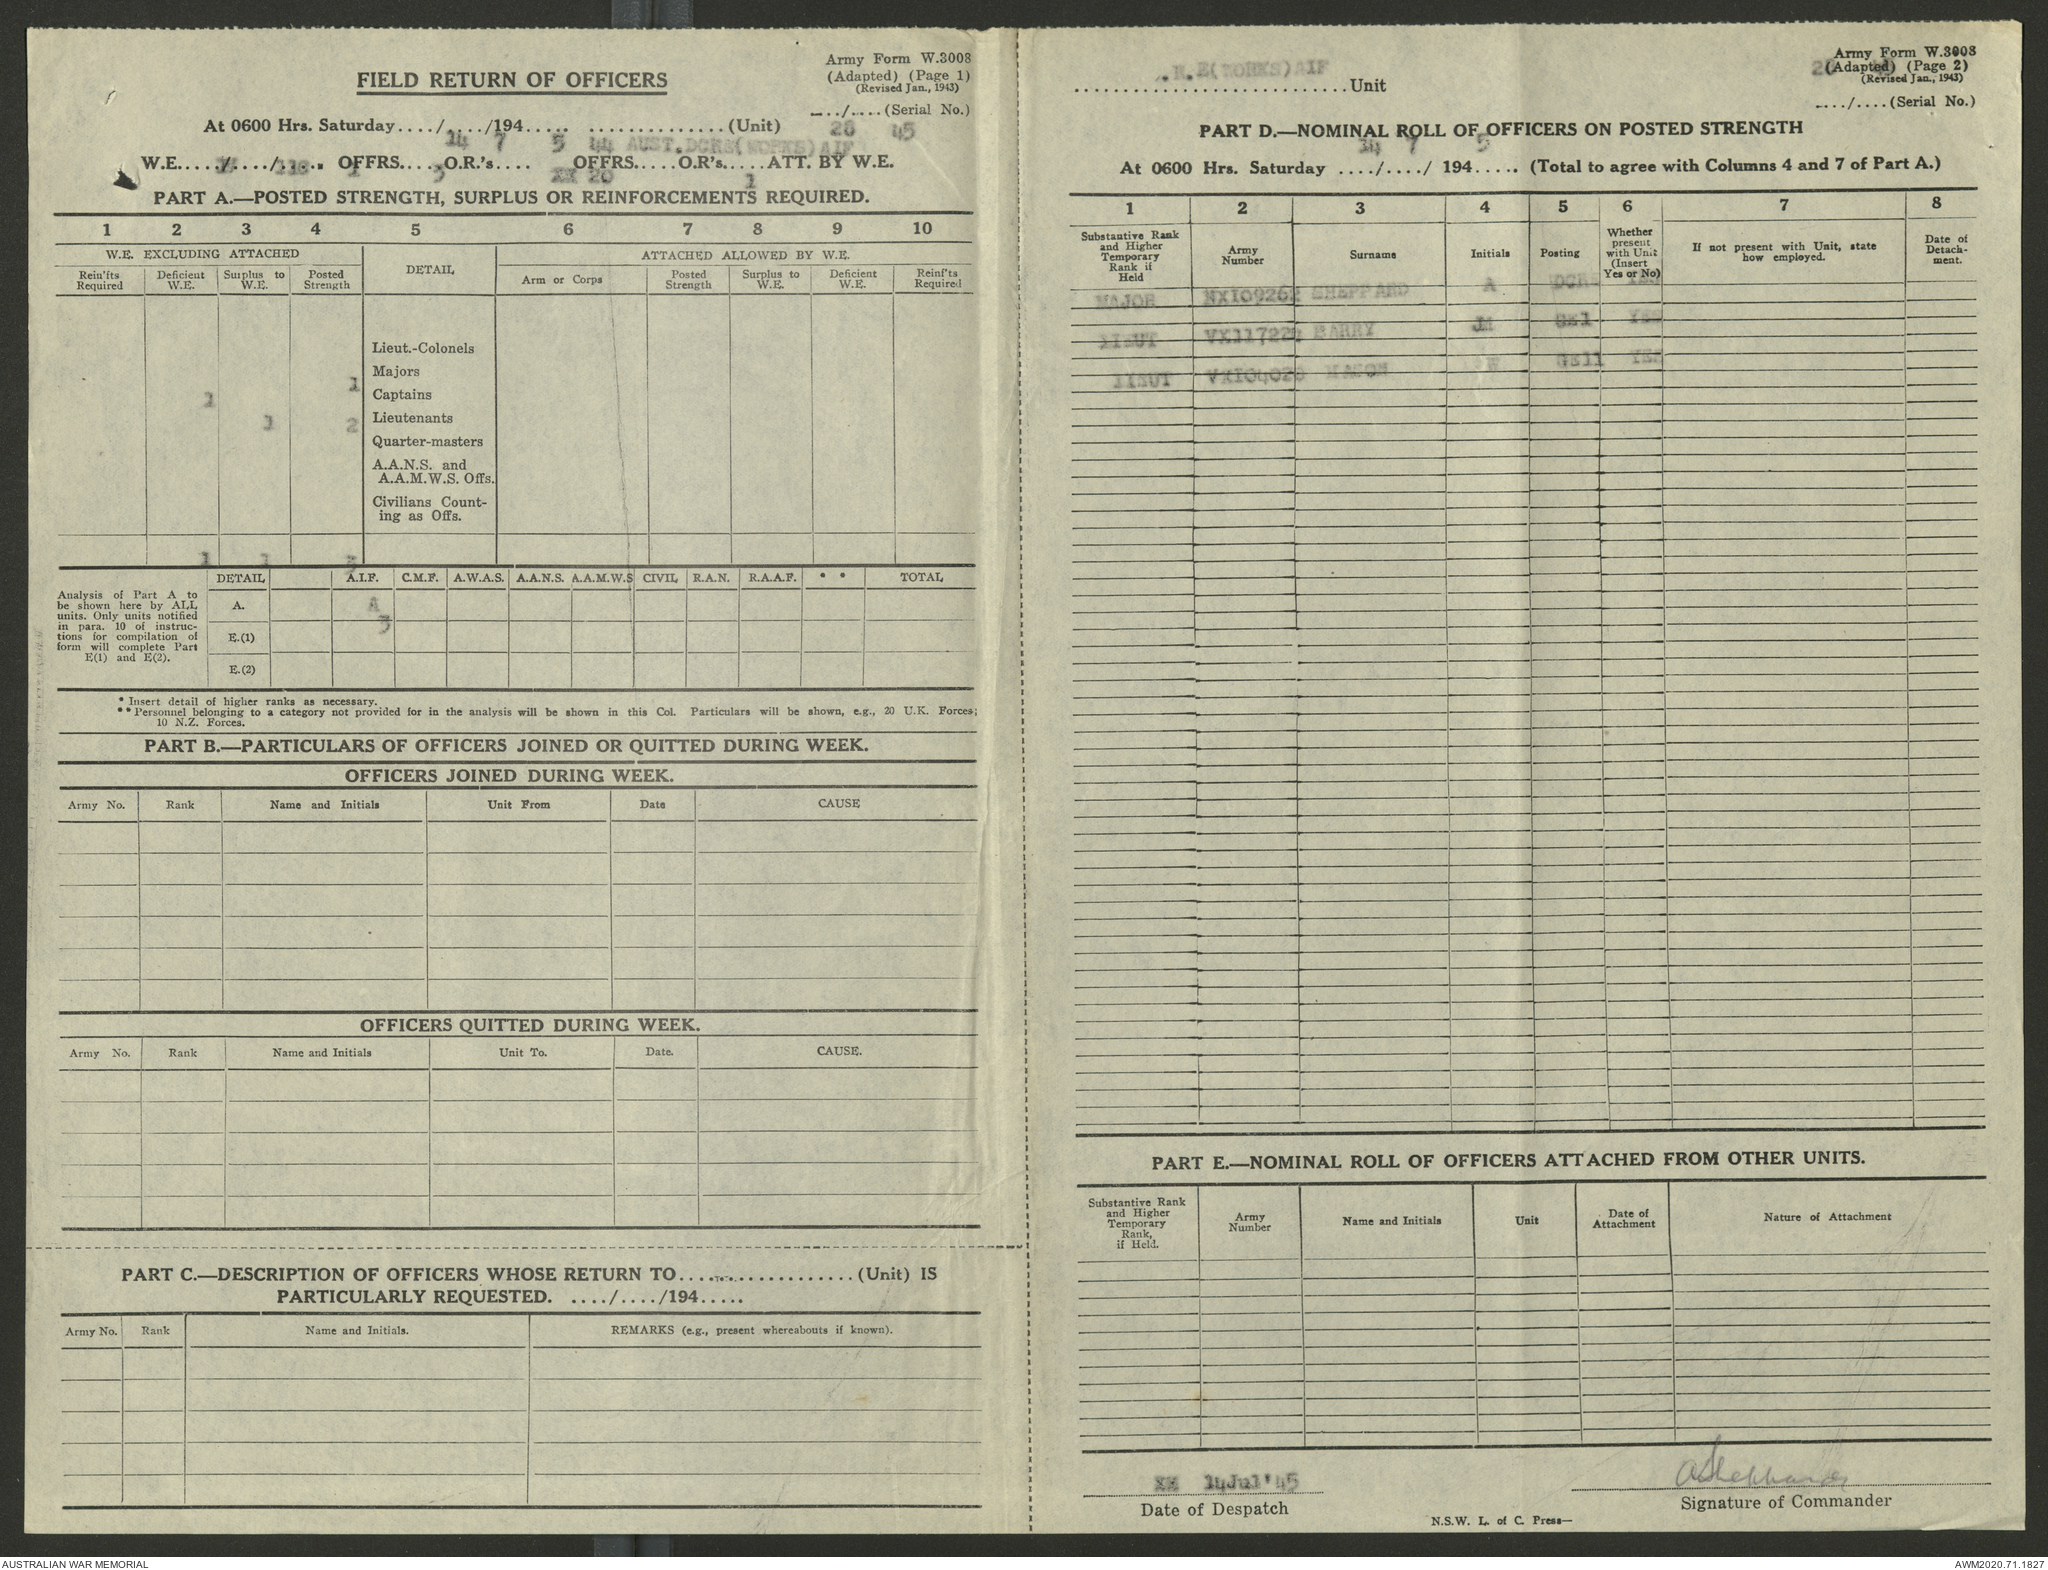 Army Form W.3008
(Adapted) (Page 1)
(Revised Jan., 1943)
FIELD RETURN OF OFFICERS
..../....(Serial No.)
28 45
At 0600 Hrs. Saturday..../..../194..... ..............(Unit)
14 7 5 44 AUST.DCRE(WORKS)AIF
W.E...../..../..... OFFRS.....O.R.'s..... OFFRS.....O.R's.....ATT. BY W.E.
1 3 XX 20 1
PART A.—POSTED STRENGTH, SURPLUS OR REINFORCEMENTS REQUIRED.
1 2 3 4 5 6 7 8 9 10
W.E. EXCLUDING ATTACHED DETAIL ATTACHED ALLOWED BY W.E.
Rein'fts Required Deficient W.E. Surplus to W.E. Posted Strength Arm or Corps Posted Strength Surplus to W.E. Deficient W.E. Reinf'ts Required
Lieut.-Colonels
Majors
1
Captains
1
Lieutenants
1 2
Quarter-masters
A.A.N.S. and
A.A.M.W.S. Offs.
Civilians Count-
ing as Offs.
1 1 3
DETAIL A.I.F. C.M.F. A.W.A.S. A.A.N.S. A.A.M.W.S CIVIL R.A.N. R.A.A.F. * * TOTAL
Analysis of Part A to
be shown here by ALL
units. Only units notified
in para. 10 of instruc-
tions for compilation of
form will complete Part
E(1) and E(2).
A. A
3
E.(1)
E.(2)
* Insert detail of higher ranks as necessary.
** Personnel belonging to a category not provided for in the analysis will be shown in this Col. Particulars will be shown, e.g., 20 U.K. Forces;
10 N.Z. Forces.
PART B.—PARTICULARS OF OFFICERS JOINED OR QUITTED DURING WEEK.
OFFICERS JOINED DURING WEEK.
Army No. Rank Name and Initials Unit From Date CAUSE
OFFICERS QUITTED DURING WEEK.
Army No. Rank Name and Initials Unit To. Date. CAUSE.
PART C.—DESCRIPTION OF OFFICERS WHOSE RETURN TO....................(Unit) IS
PARTICULARLY REQUESTED. ..../..../194.....
Army No. Rank Name and Initials. REMARKS (e.g., present whereabouts if known).
Army Form W.3008
(Adapted) (Page 2)
(Revised Jan., 1943)
R.E(WORKS)AIF
............................Unit
..../....(Serial No.)
PART D.—NOMINAL ROLL OF OFFICERS ON POSTED STRENGTH
14 7 5
At 0600 Hrs. Saturday ..../..../ 194..... (Total to agree with Columns 4 and 7 of Part A.)
1 2 3 4 5 6 7 8
Substantive Rank and Higher Temporary Rank if Held Army Number Surname Initials Posting Whether present with Unit (Insert Yes or No) If not present with Unit, state how employed. Date of Detach-ment.
MAJOR NX109262 SHEPPARD A DCRE YES
LIEUT BARRY JM GE1 YES
LIEUT W GE11 YES
PART E.—NOMINAL ROLL OF OFFICERS ATTACHED FROM OTHER UNITS.
Substantive Rank and Higher Temporary Rank, if Held. Army Number Name and Initials Unit Date of Attachment Nature of Attachment
XX 14Jul'45
Date of Despatch
ASheppard
Signature of Commander
N.S.W. L. of C. Press—
AUSTRALIAN WAR MEMORIAL
AWM2020.71.1827